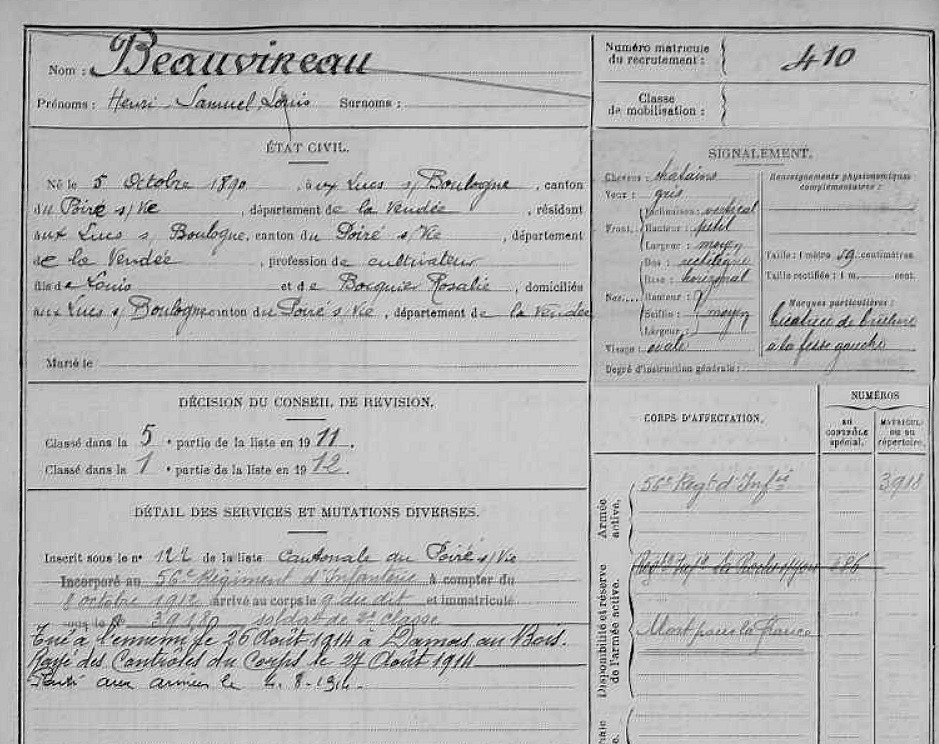 Nom : Beauvineau
Prénoms : Henri Samuel Louis Surnoms :
Numéro matricule du recrutement : 410
Classe de mobilisation :
ÉTAT CIVIL.
Né le 5 Octobre 1890, aux Lucs s/ Boulogne, canton
du Poiré s/Vie, département de la Vendée, résidant
aux Lucs s/ Boulogne, canton du Poiré s/Vie, département
de la Vendée, profession de cultivateur
fils de Louis et de Bocquier Rosalie, domiciliés
aux Lucs s/ Boulogne canton du Poiré s/Vie, département de la Vendée
Marié le
SIGNALEMENT.
Cheveux : chatains
Yeux : gris
Front. Inclinaison : vertical
Hauteur : petit
Largeur : moyen
Nez. Dos : rectiligne
Base : horizontal
Hauteur :
Saillie : moyen
Largeur :
Visage : ovale
Renseignements physionomiques complémentaires :
Taille : 1 mètre 59 centimètres.
Taille rectifiée : 1 m. cent.
Marques particulières :
Cicatrice de brûlure
à la fesse gauche
Degré d'instruction générale :
DÉCISION DU CONSEIL DE RÉVISION.
Classé dans la 5e partie de la liste en 1911.
Classé dans la 1e partie de la liste en 1912.
DÉTAIL DES SERVICES ET MUTATIONS DIVERSES.
Inscrit sous le n° 122 de la liste Cantonale du Poiré s/Vie
Incorporé au 56e Régiment d'Infanterie à compter du
8 octobre 1912 arrivé au corps le 9 du dit et immatriculé
sous le n° 3918 soldat de 2e classe
Tué à l'ennemi le 26 Août 1914 à Damas au Bois.
Rayé des Contrôles du Corps le 27 Août 1914
aux armées le 4-8-1914.
CORPS D'AFFECTATION.
NUMÉROS
AU CONTRÔLE spécial.
MATRICULE OU AU répertoire.
Armée active.
56e Regt d'Infie 3918
Disponibilité et réserve de l'armée active.
Regt Infie La Roche s/yon
Mort pour la France